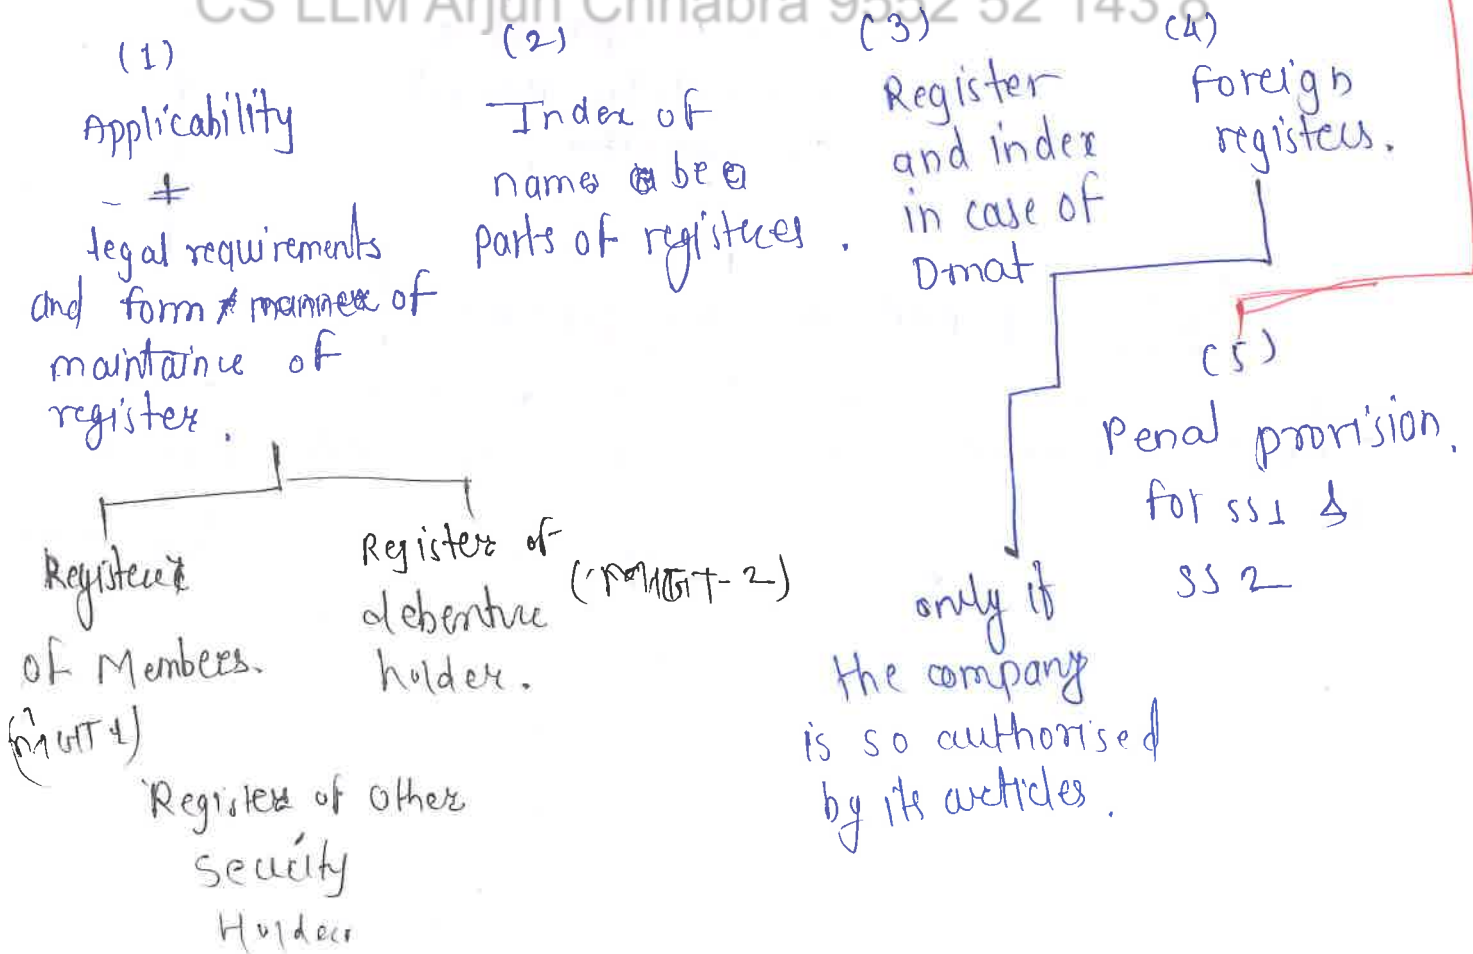 CS LLM Arjun Chhabra 9552 52 143 8
(1)
Applicability
+
legal requirements
and form & manner of
maintaince of
register.
Register
of Members.
(MGT 1)
Register of
debenture
holder.
(MGT-2)
Register of other
Security
Holder
(2)
Index of
names be
parts of registeres.
(3)
Register
and index
in case of
Dmat
(4)
foreign
registers.
only if
the company
is so authorised
by its articles.
(5)
Penal provision.
for ss1 &
ss 2